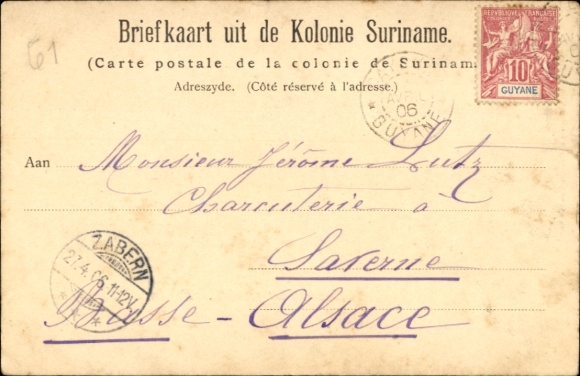 61
Briefkaart uit de Kolonie Suriname.
(Carte postale de la colonie de Surinam
Adreszyde. (Côté réservé à l'adresse.)
RÉPUBLIQUE FRANÇAISE
10
GUYANE
06
GUYANE
Aan Monsieur Jérôme Lutz
Charcuterie à
Saverne
Basse-Alsace
ZABERN
27.4.06.11-12V.